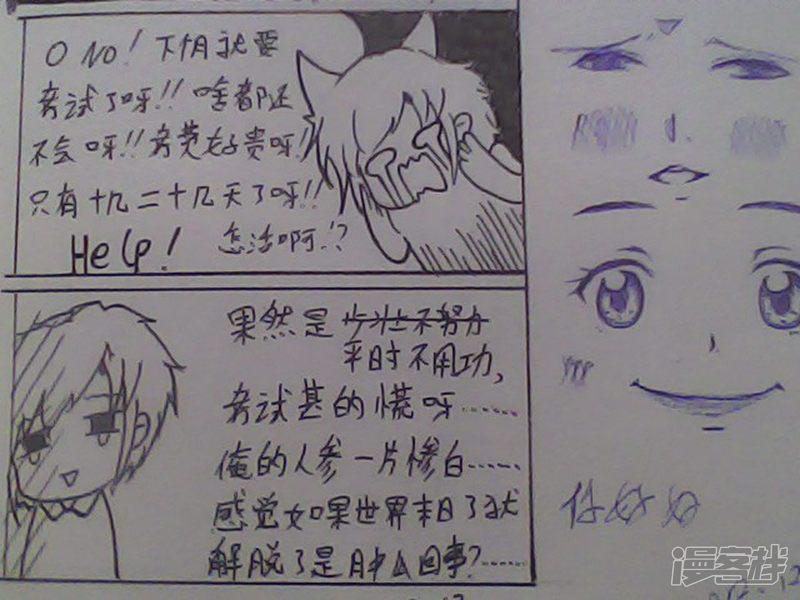 O NO! 下个月就要
考试了呀!! 啥都还
不会呀!! 考费好贵呀!!
只有十几二十几天了呀!!
Help! 怎活啊!?
果然是
平时不用功,
考试甚的慌呀……
俺的人参一片惨白……
感觉如果世界末日了就
解脱了是月中么回事?……
你好
漫客栈